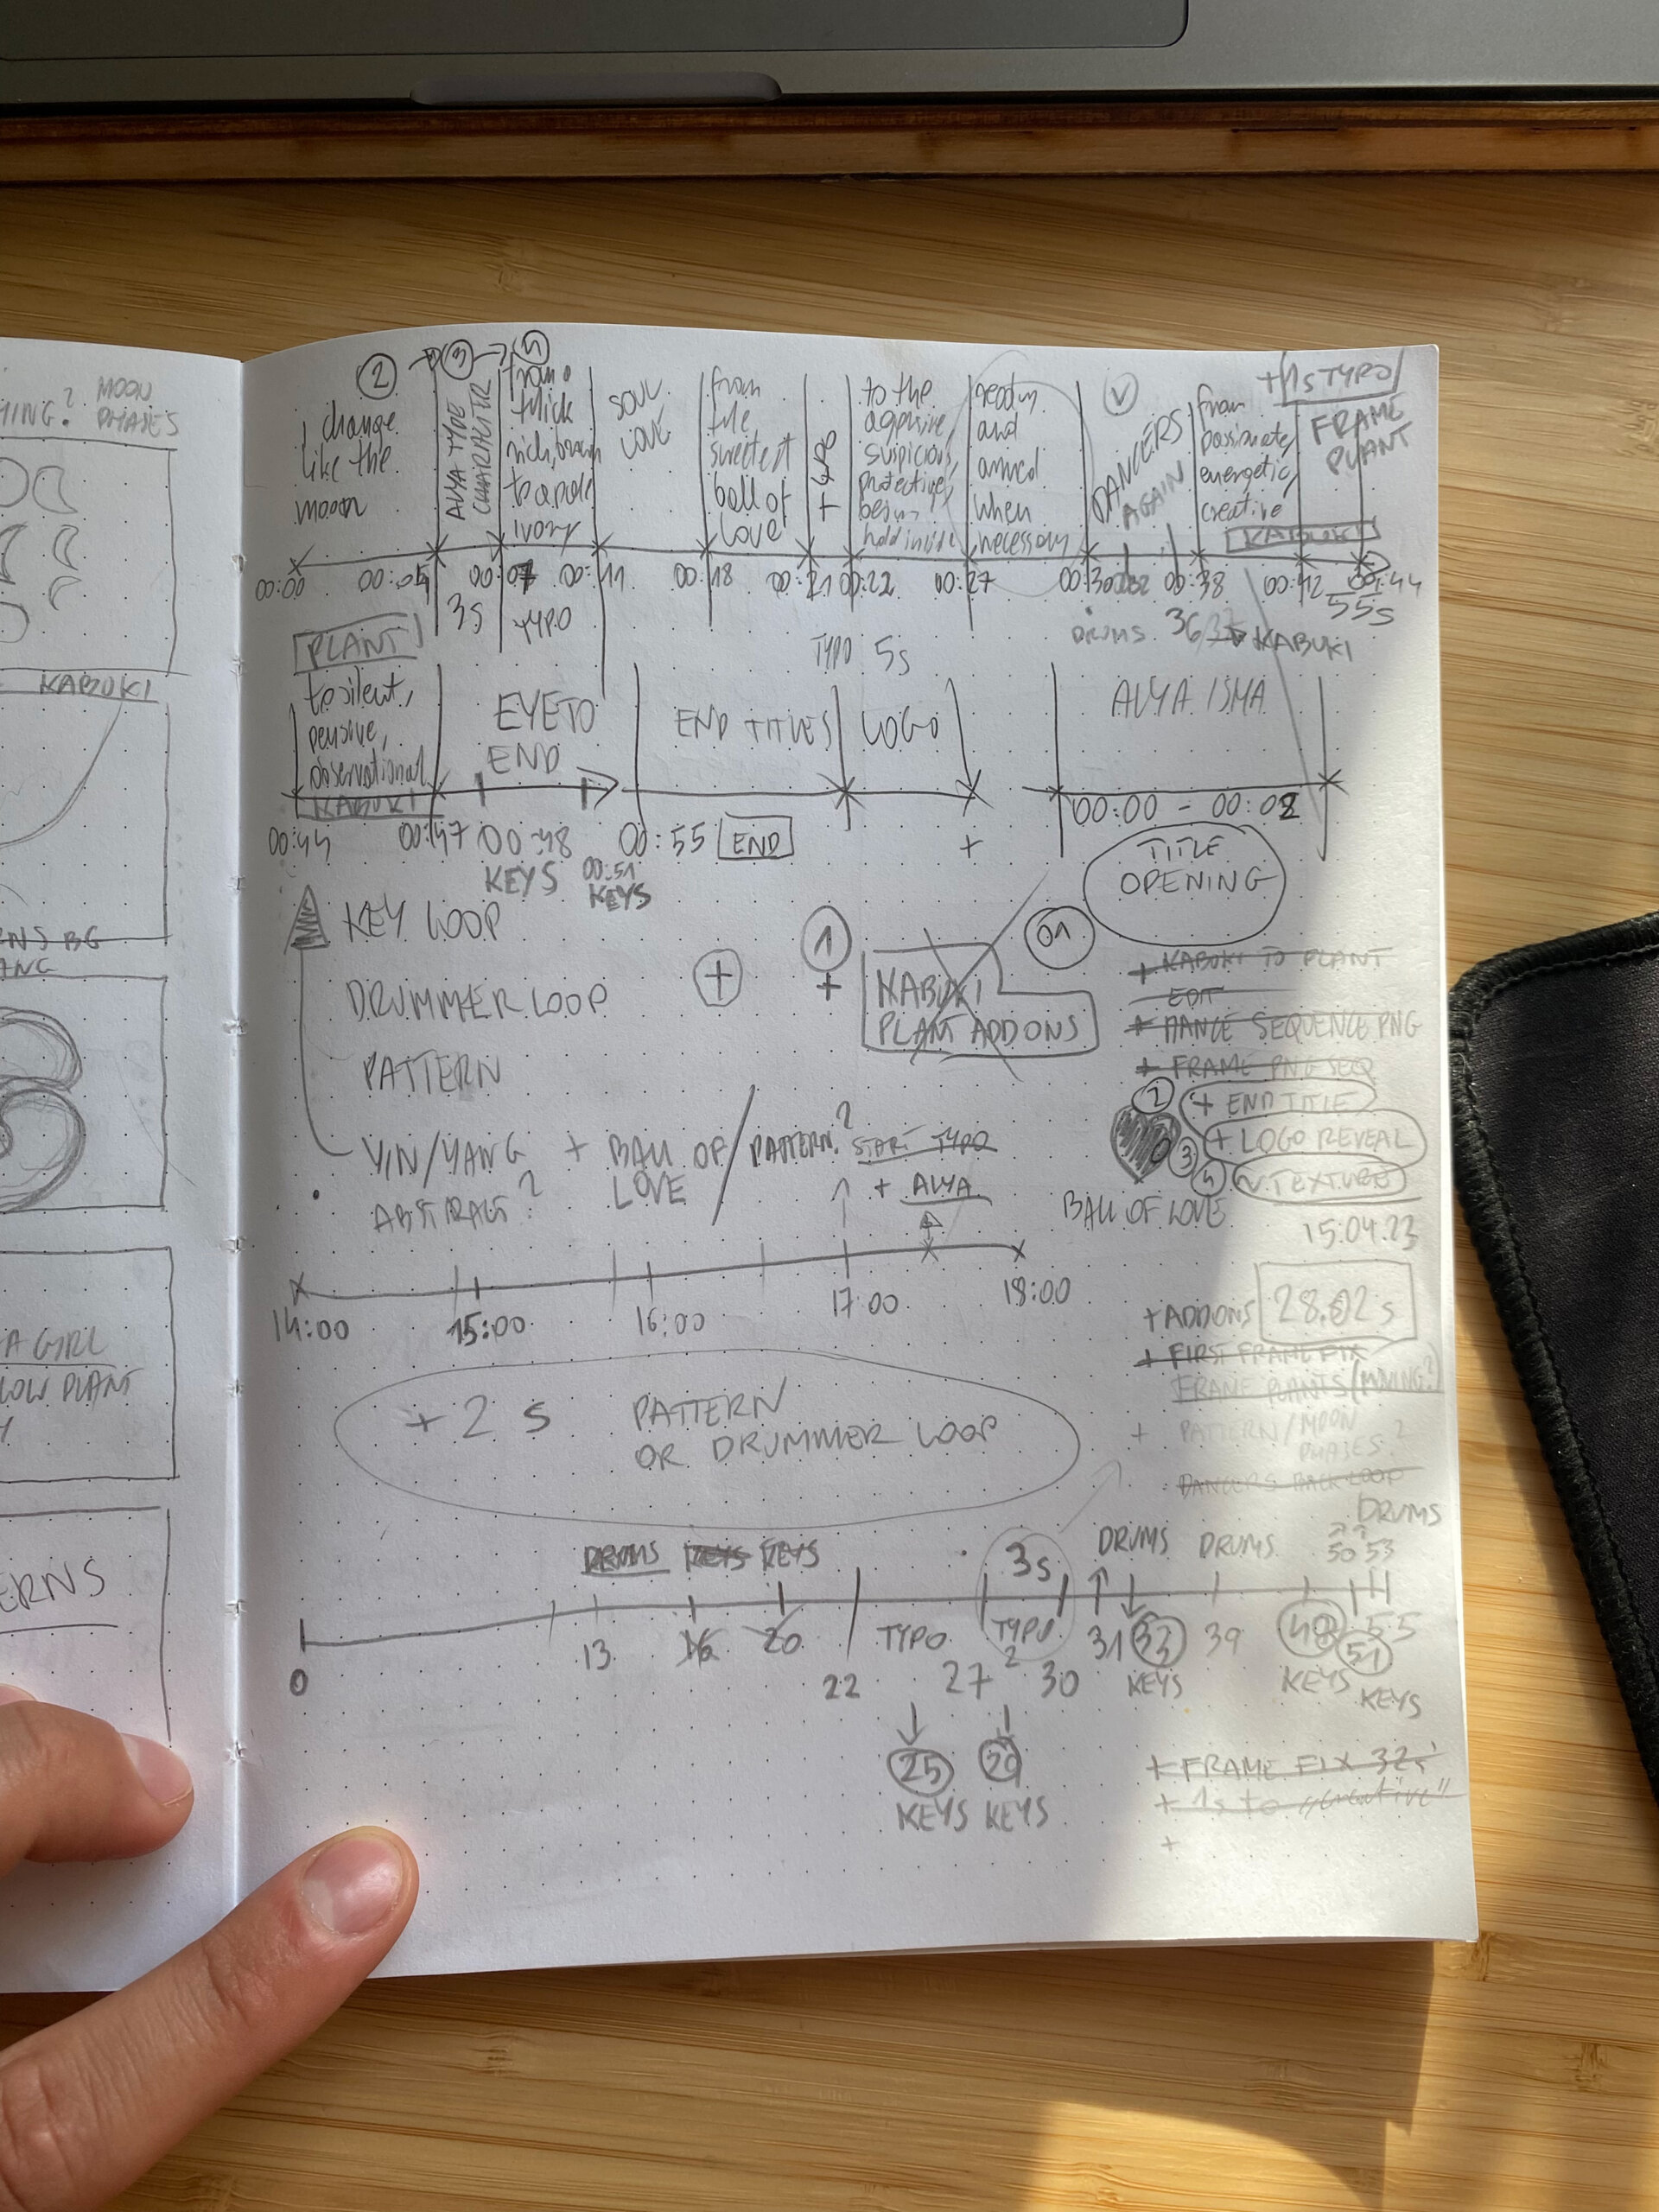 MOON
PHASES
KABUKI
A GIRL
PLANT
2 → 3 →
i change
like the
moon
ALYA TYPE
CHARACTER
from
thick
rich, brown
to a pale
ivory
SOUL
LOVE
from
the
sweetest
ball of
love
TYPO
to the
suspicious,
protective,
hold inside
ready
and
armed
when
necessary
V
DANCERS
AGAIN
from
passionate,
energetic,
creative
KABUKI
+1s TYPO
FRAME
PLANT
00:00
00:11
00:18
00:21
00:22
00:27
00:38
00:42
00:44
55s
3s
TYPO
TYPO 5s
DRUMS
36
KABUKI
PLANT
to silent,
pensive,
observational
KABUKI
EYE TO
END
END TITLES
LOGO
ALYA ISMA
00:44
00:47
00:48
KEYS
00:51
KEYS
00:55
END
+
00:00 - 00:02
TITLE
OPENING
KEY LOOP
DRUMMER LOOP
PATTERN
YIN/YANG
ABSTRACT?
+ BALL OF
LOVE
/ PATTERN?
START TYPO
+ ALYA
+
1
+
KABUKI
PLANT ADDONS
01
+ KABUKI TO PLANT
EDIT
+ DANCE SEQUENCE PNG
+ FRAME PNG SEQ
2 + END TITLE
3 + LOGO REVEAL
4 ~ TEXTURE
BALL OF LOVE
15.04.23
14:00
15:00
16:00
17:00
18:00
+ ADDONS
28.02 s
+ FIRST FRAME FIX
FRAME PLANTS/MOVING?
+ PATTERN/MOON
PHASES?
DANCERS BACK LOOP
+ 2 s
PATTERN
OR DRUMMER LOOP
DRUMS
KEYS
KEYS
3s
DRUMS
DRUMS
DRUMS
50 53
0
13
16
20
22
TYPO
27
TYPO
2
30
31
33
KEYS
39
48
KEYS
51
KEYS
55
25
KEYS
29
KEYS
+ FRAME FIX 32s
+ 1s to "creative"
+